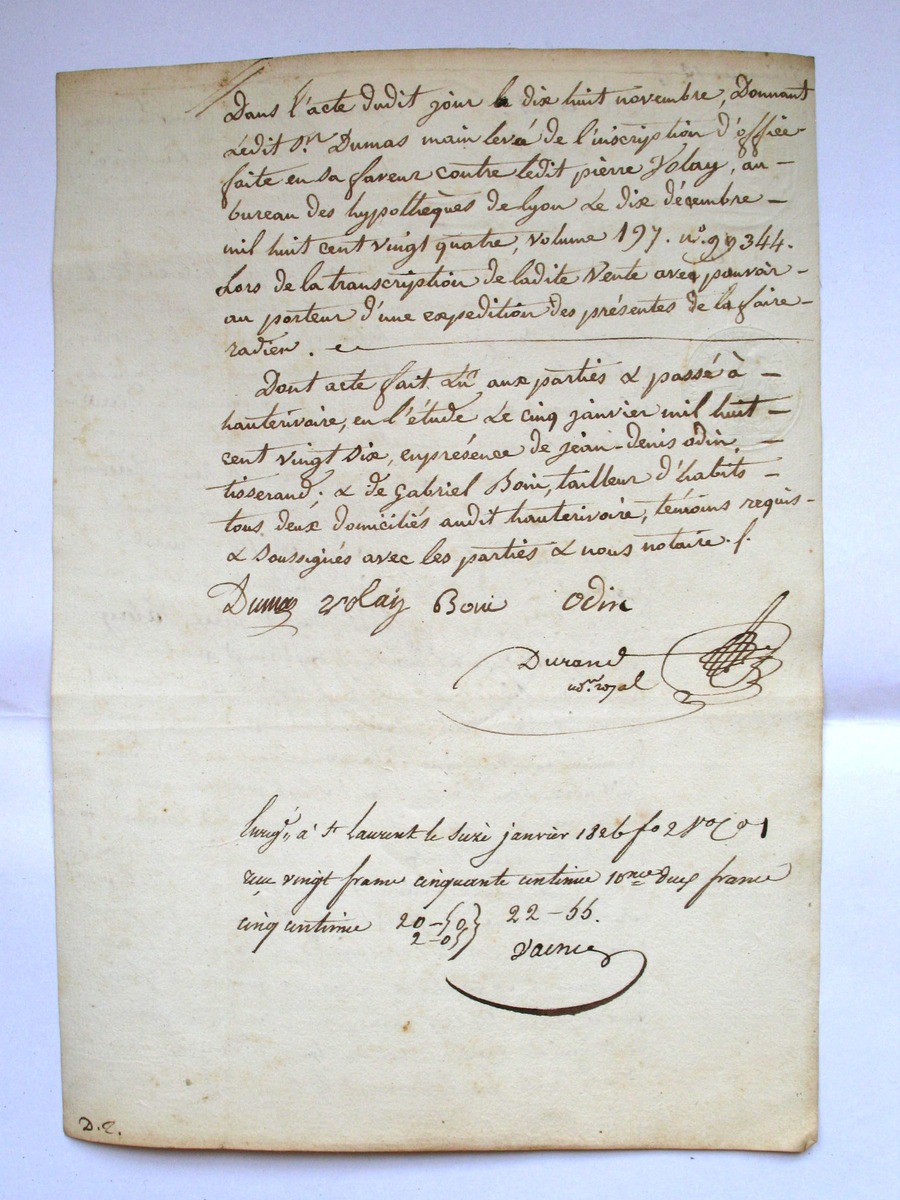 Dans l'acte dudit jour le dix huit novembre, Donnant
Ledit Sr. Dumas main levé de l'inscription d'office
faite en sa faveur contre ledit pierre Volay, au
bureau des hypothèques de lyon Le dix décembre
mil huit cent vingt quatre, volume 197. no. 99344.
Lors de la transcription de ladite Vente avec pouvoir
au porteur d'une expedition des présentes de la faire
radier.
Dont acte fait Lu aux parties & passé à
hauterivoire, en l'étude Le cinq janvier mil huit
cent vingt Six, en présence de jean-denis odin
tisserand; & de Gabriel Boin, tailleur d'habits
tous deux domiciliés audit hauterivoire, témoins requis
& Soussignés avec les parties & nous notaire.
Dumas Volay Boin Odin
Durand
nore. royal
Enregé. à St Laurent le Seize janvier 1826 fo 2
vingt francs cinquante centimes 10me deux francs
cinq centimes 20-50 } 22-55.
2-05
D.E.